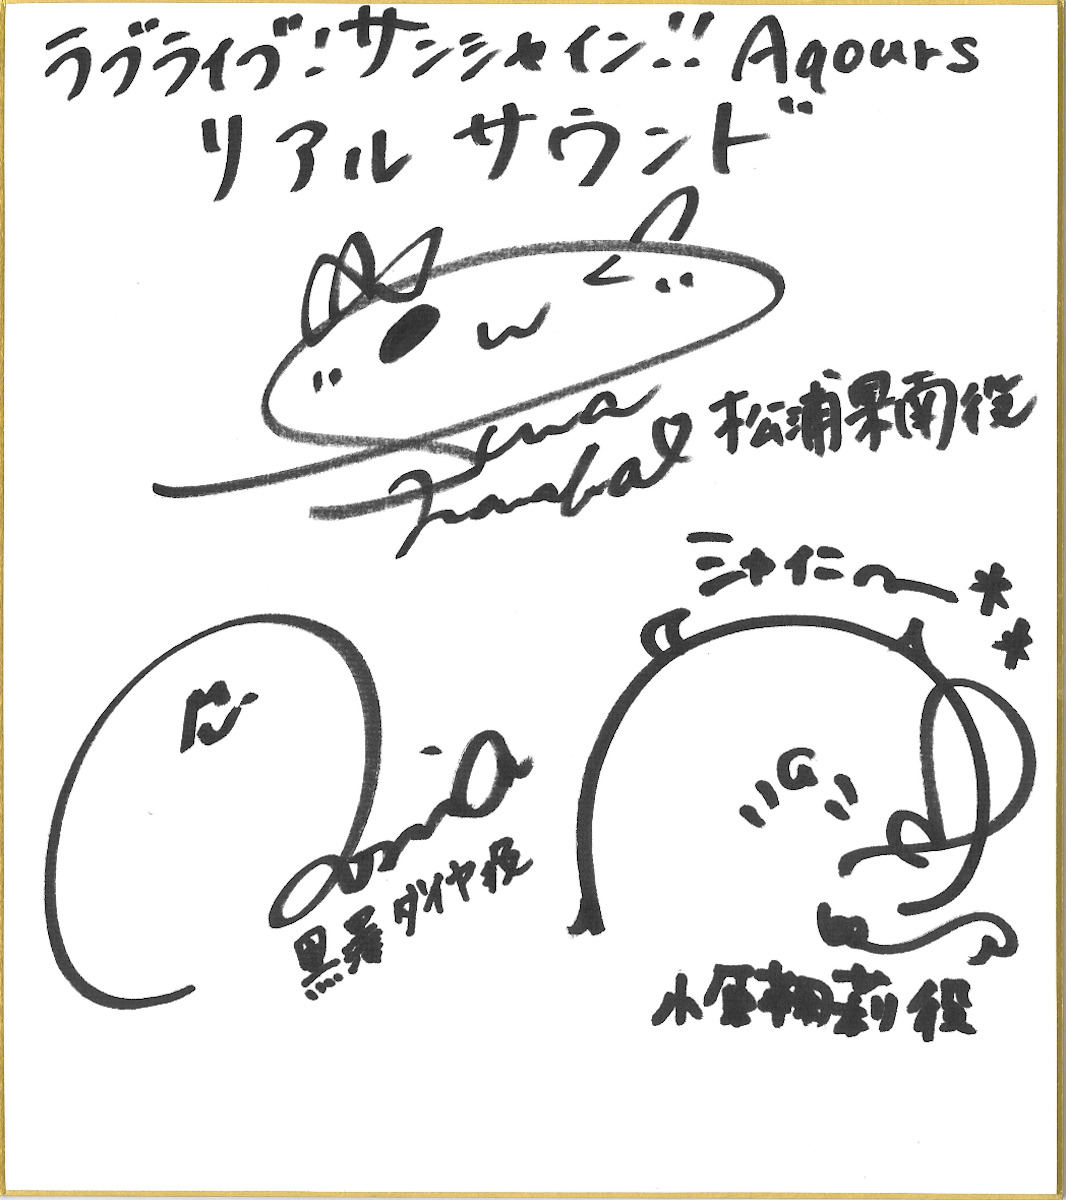 ラブライブ!サンシャイン!! Aqours
リアルサウンド
松浦果南役
シャイニ〜**
黒澤ダイヤ役
小原鞠莉役